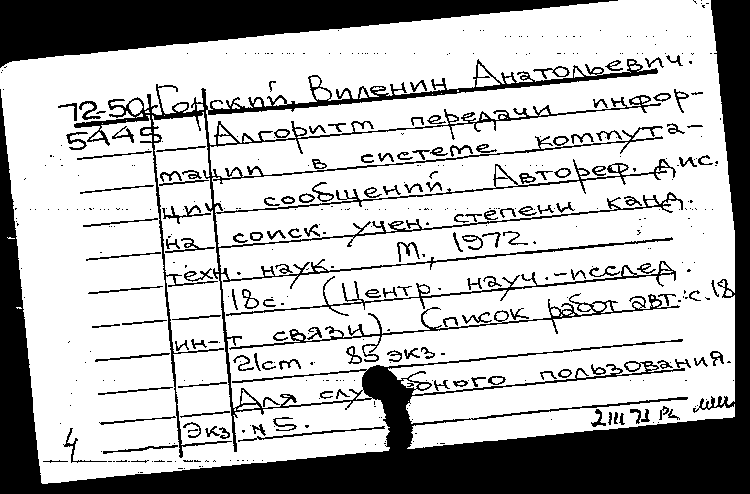 72-50 Горский, Виленин Анатольевич.
5445 Алгоритм передачи инфор-
мации в системе коммута-
ции сообщений. Автореф. дис.
на соиск. учен. степени канд.
техн. наук. М., 1972.
18с. (Центр. науч.-исслед.
ин-т связи). Список работ авт.: с.18
21см. 85 экз.
Для служебного пользования.
Экз. №5.
4